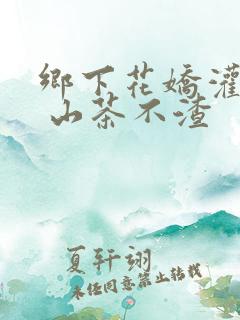 鄉下花嬌灌
山茶不渣
夏轩翊
未经同意禁止转载